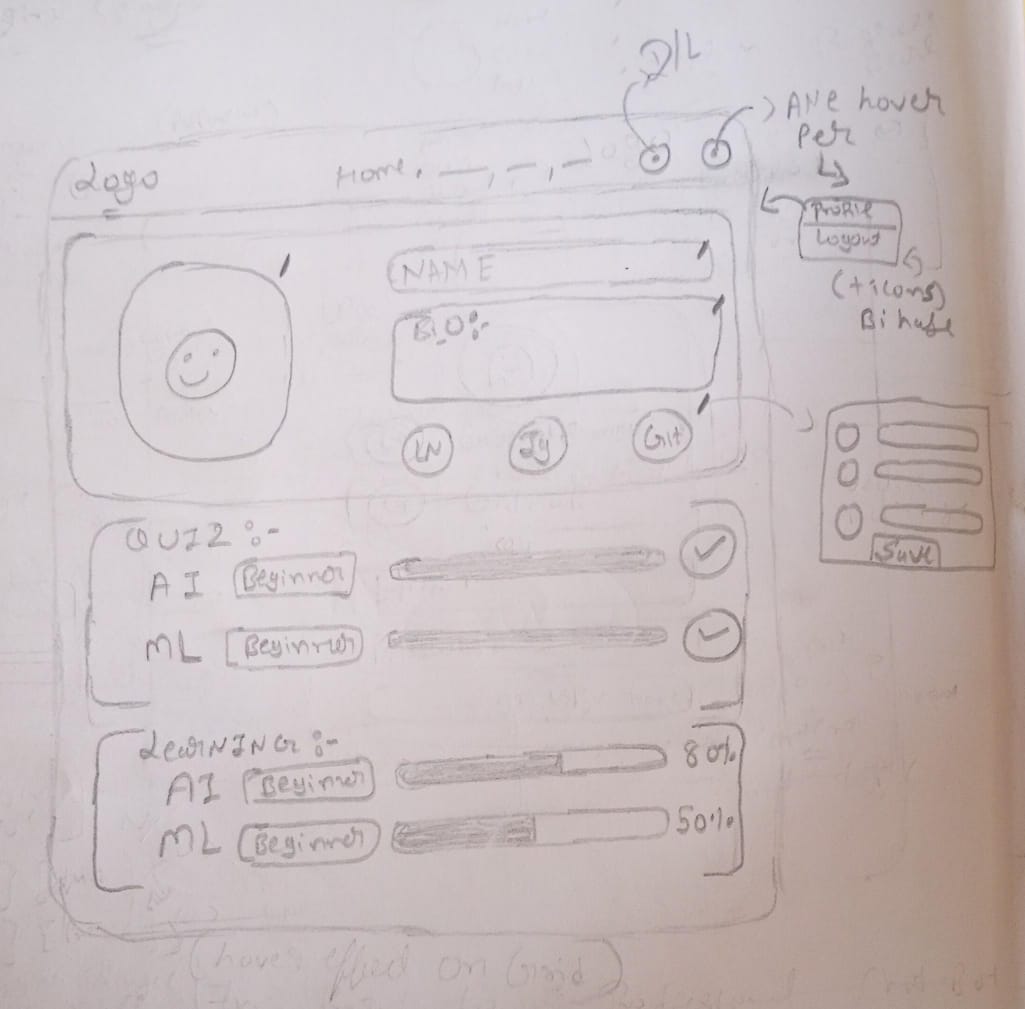 D/L
ANe hover
Per
Logo
Home,
Profile
Logout
(+icons)
NAME
BIO:-
LN
Ig
Git
Save
QUIZ :-
AI Beginner
ML Beginner
LearNING :-
AI Beginner 80%
ML Beginner 50%
(hover effect on Grid)